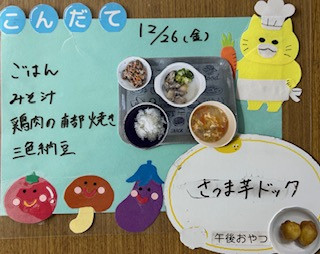 こんだて
12/26(金)
ごはん
みそ汁
鶏肉の南部焼き
三色納豆
さつま芋ドック
午後おやつ